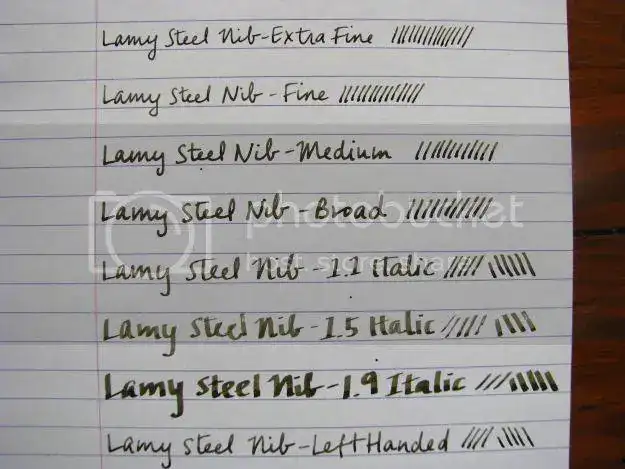 Lamy Steel Nib-Extra Fine
Lamy Steel Nib-Fine
Lamy Steel Nib-Medium
Lamy Steel Nib-Broad
photobucket
Lamy Steel Nib-1.1 Italic
Lamy Steel Nib-1.5 Italic
Lamy Steel Nib-1.9 Italic
Lamy Steel Nib-Left Handed